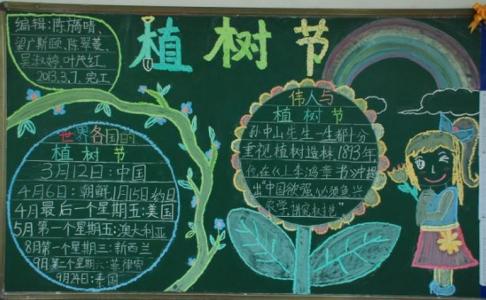 植树节
编辑:陈嫣晴、
梁广斯颐、陈翠菱、
吴淑婷、叶茂红
2013.3.7.完工
世界各国的
植树节
3月12日:中国
4月6日:朝鲜 1月15日:约旦
4月最后一个星期五:美国
5月第一个星期五:澳大利亚
8月第一个星期三:新西兰
9月第二个星期六:菲律宾
9月24日:
伟人与
植树节
孙中山先生一生都十分
重视植树造林1893年
他在《上李鸿章书》中提
出"中国欲强